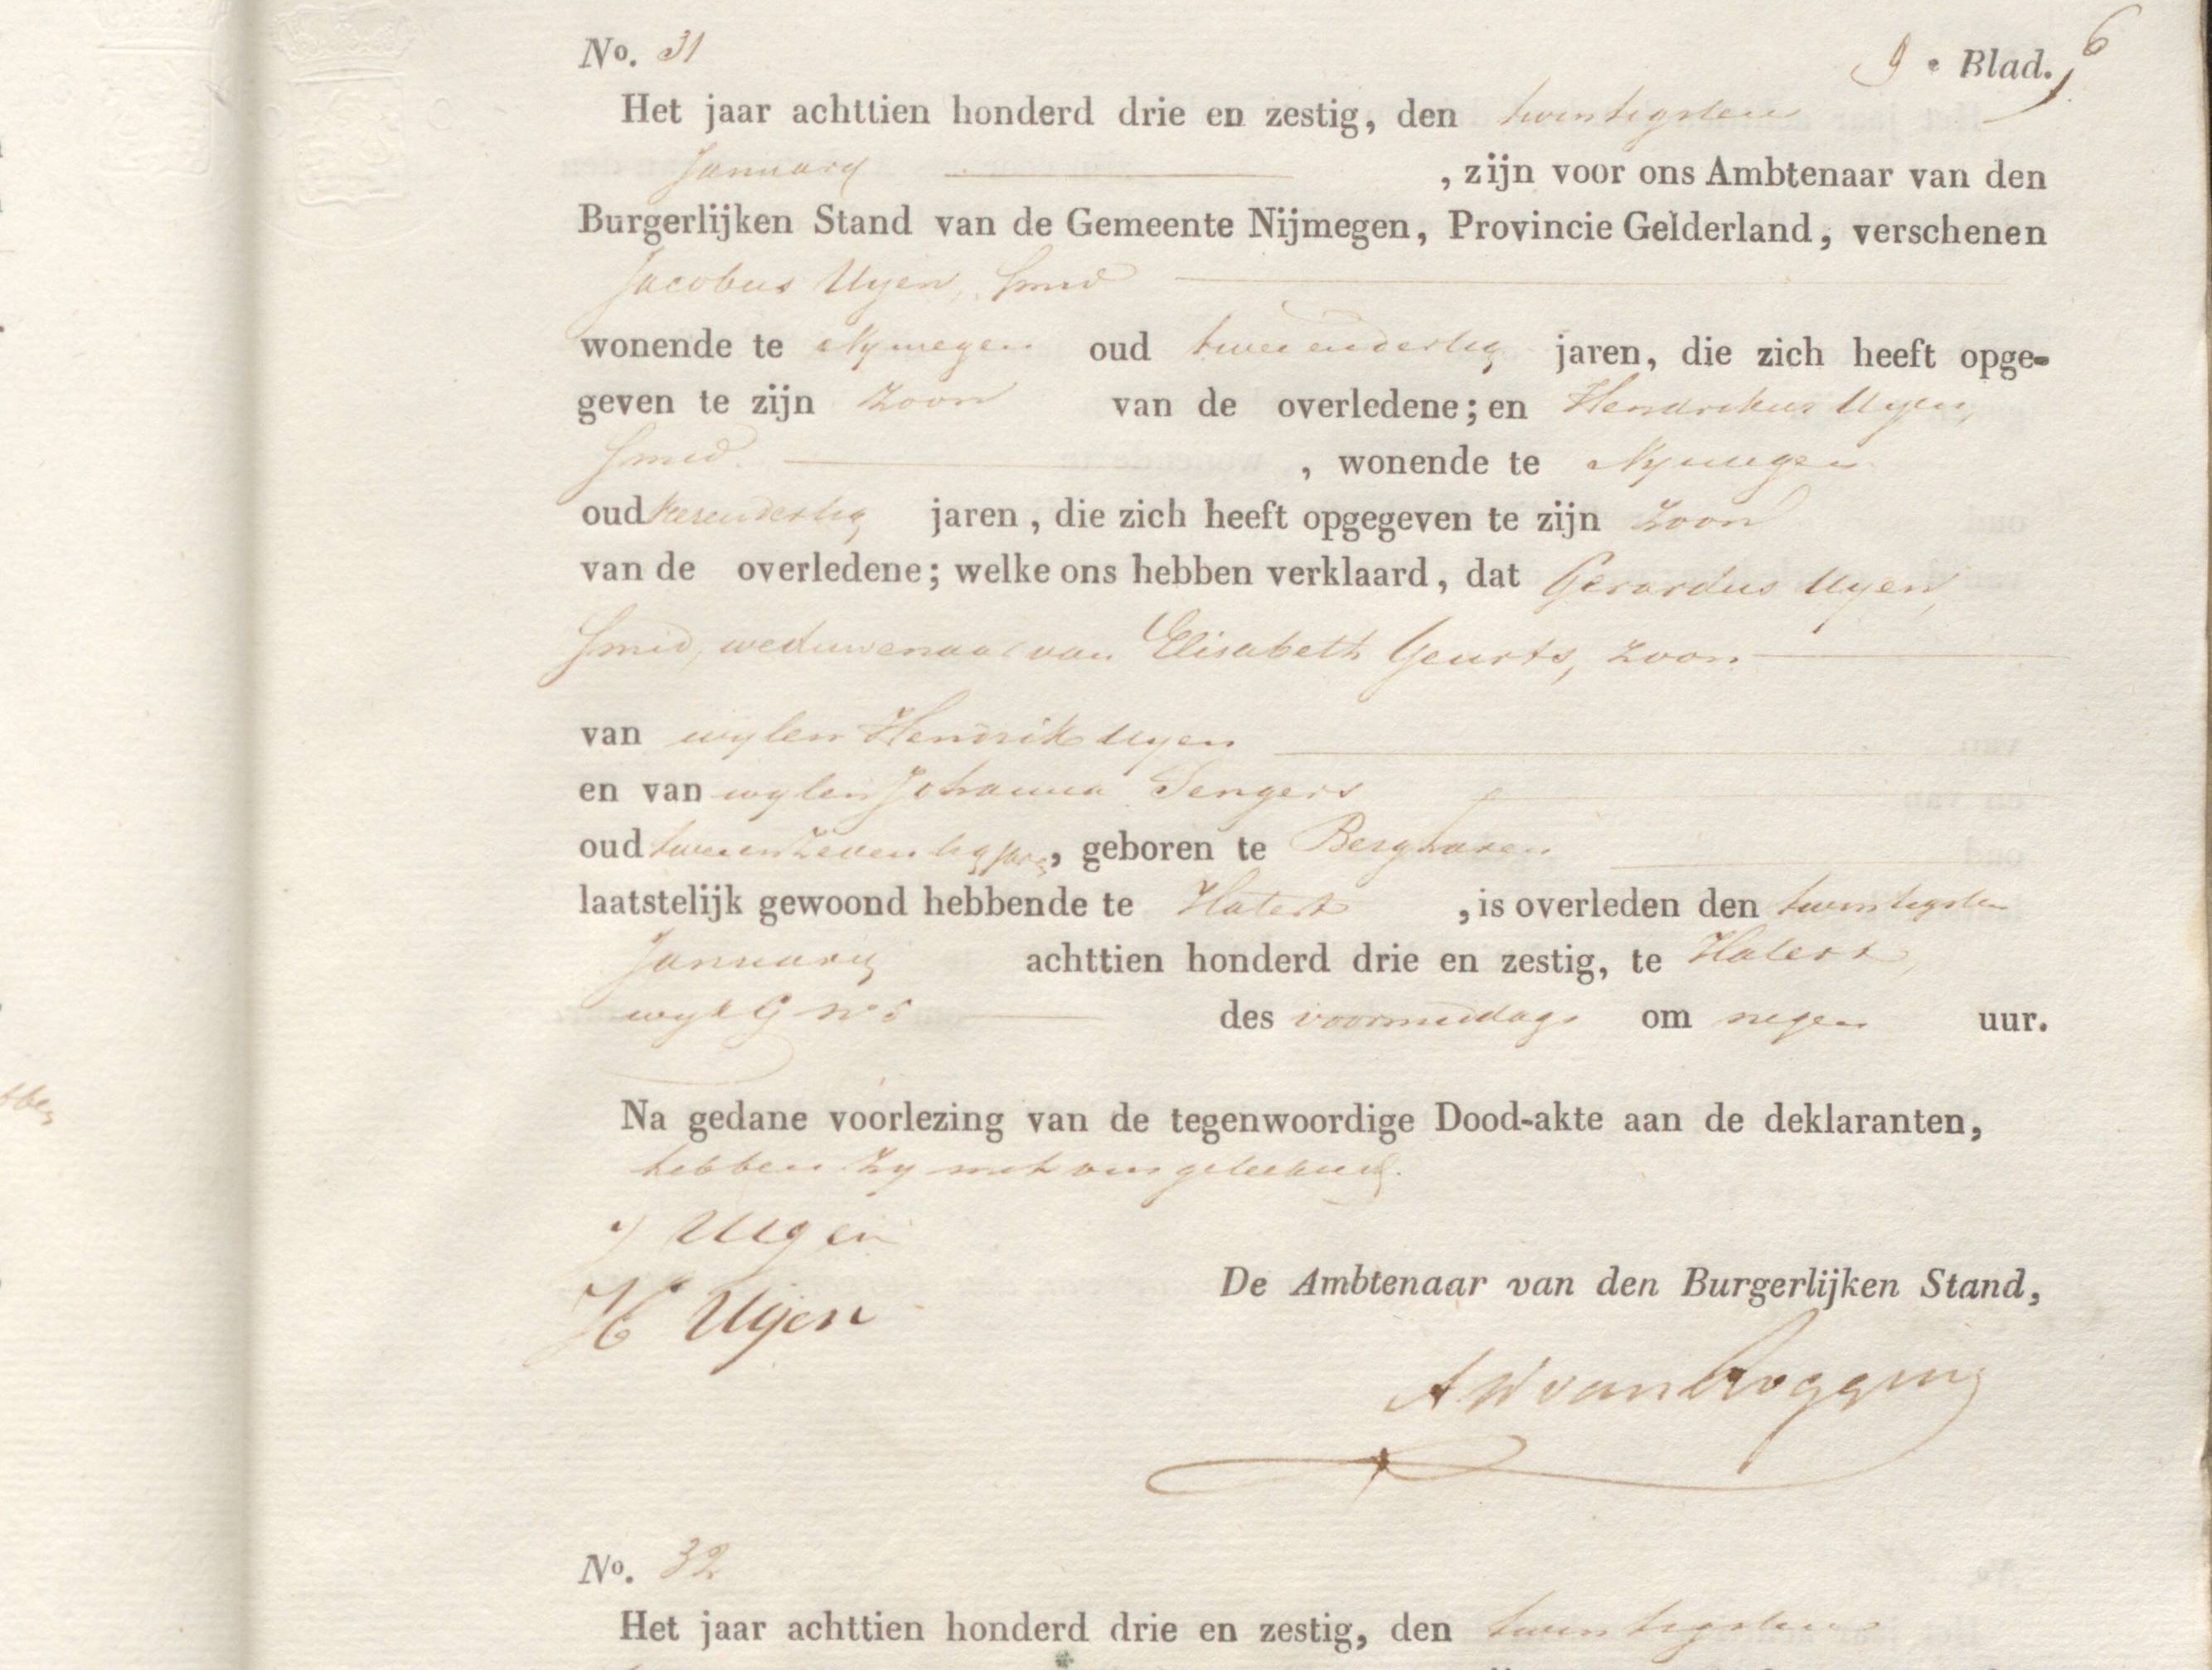 No. 31 9e Blad. 6
Het jaar achttien honderd drie en zestig, den twintigsten
January , zijn voor ons Ambtenaar van den
Burgerlijken Stand van de Gemeente Nijmegen, Provincie Gelderland, verschenen
Jacobus Uyen, Smid
wonende te Nymegen oud tweeendertig jaren, die zich heeft opge-
geven te zijn zoon van de overledene; en Hendrikus Uyen,
Smid. , wonende te Nymegen
oud jaren, die zich heeft opgegeven te zijn zoon
van de overledene; welke ons hebben verklaard, dat Gerardus Uyen,
Smid, weduwenaar van Elisabeth Geurts, zoon
van wylen Hendrik Uyen
en van wylen Johanna Sengers
oud tweeenzeventig jaren, geboren te Bergharen
laatstelijk gewoond hebbende te Hatert , is overleden den twintigsten
January achttien honderd drie en zestig, te Hatert,
wyk G No 5 des voormiddags om negen uur.
Na gedane voorlezing van de tegenwoordige Dood-akte aan de deklaranten,
hebben zy met ons geteekend.
J Uyen
H Uijen
De Ambtenaar van den Burgerlijken Stand,
No. 32
Het jaar achttien honderd drie en zestig, den twintigsten